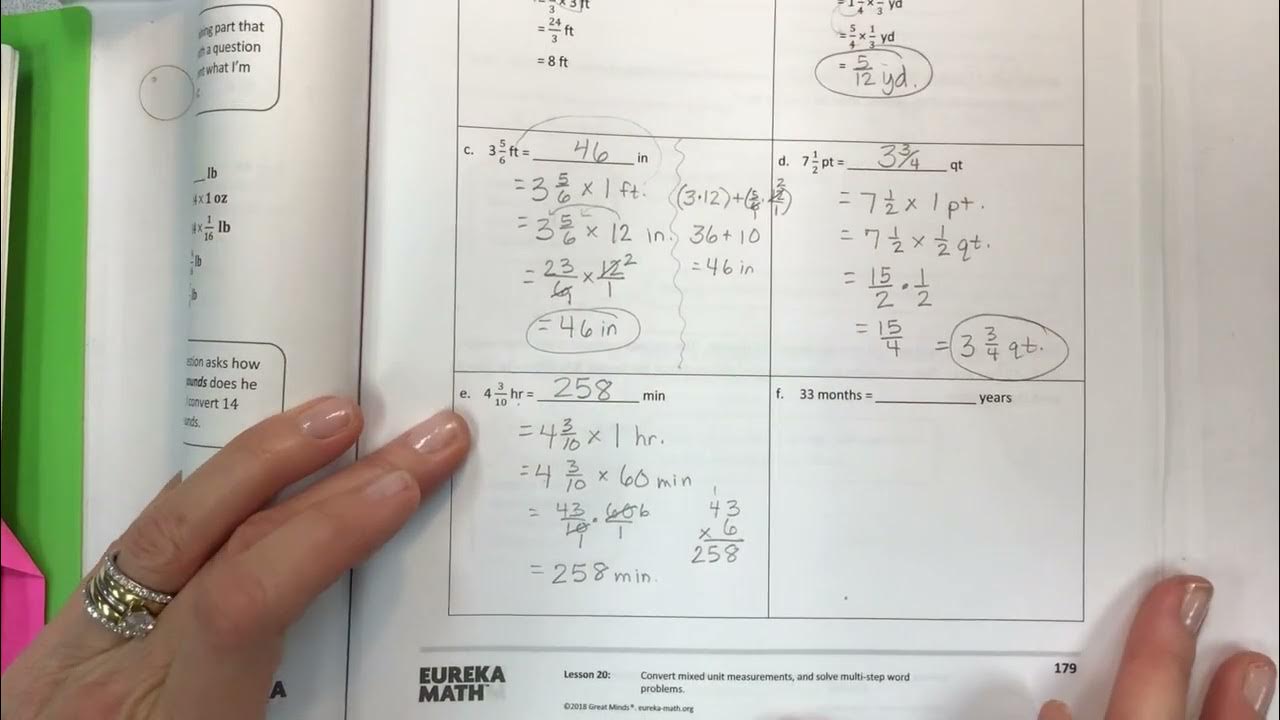 ning part that
th a question
nt what I'm
__ lb
4 × 1 oz
4 × 1/16 lb
lb
lb
estion asks how
ounds does he
convert 14
unds.
A
/3 × 3 ft
= 24/3 ft
= 8 ft
= 1 1/4 × 1/3 yd
= 5/4 × 1/3 yd
= 5/12 yd.
c. 3 5/6 ft = 46 in
= 3 5/6 × 1 ft.
= 3 5/6 × 12 in.
= 23/6 1 × 12 2/1
= 46 in
(3·12)+(5/6 1 · 12 2/1)
36 + 10
= 46 in
d. 7 1/2 pt = 3 3/4 qt
= 7 1/2 × 1 pt.
= 7 1/2 × 1/2 qt.
= 15/2 · 1/2
= 15/4 = 3 3/4 qt.
e. 4 3/10 hr = 258 min
= 4 3/10 × 1 hr.
= 4 3/10 × 60 min
= 43/10 1 · 60 6/1
= 258 min.
1
43
× 6
258
f. 33 months = __________ years
EUREKA
MATH™
Lesson 20: Convert mixed unit measurements, and solve multi-step word
problems.
©2018 Great Minds®. eureka-math.org
179